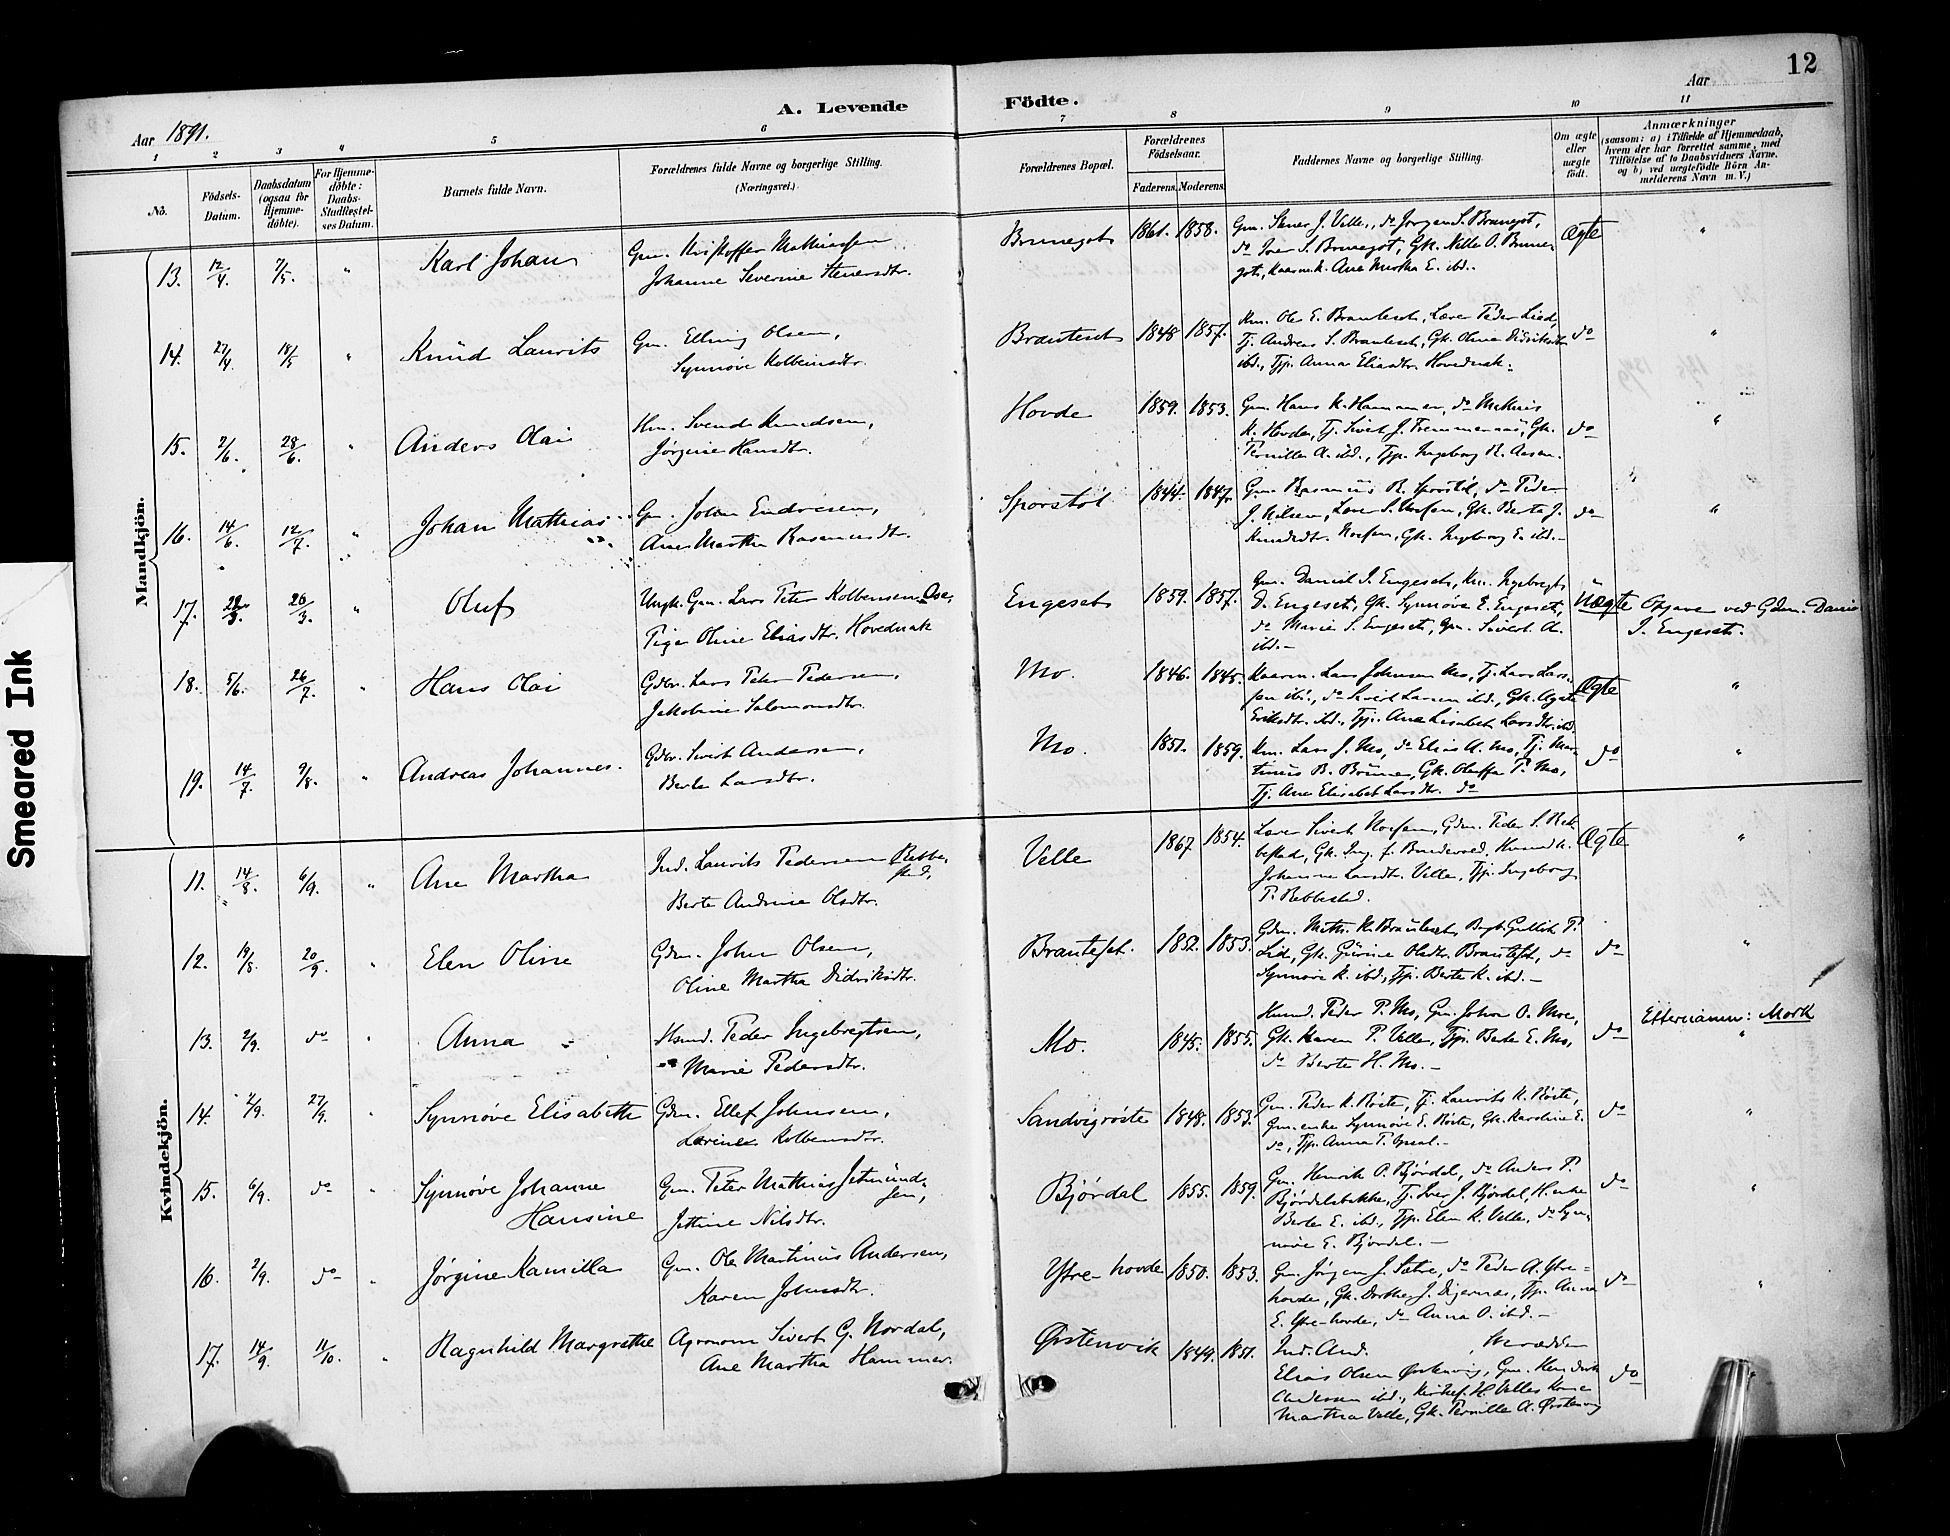 12
A. Levende Födte.
Aar 1891.
Aar
1 2 3 4 5 6 7 8 9 10 11
No.
Födsels-Datum.
Daabsdatum (ogsaa for Hjemme-döbte).
For Hjemme-döbte: Daabs-Stadfæstel-ses Datum.
Barnets fulde Navn.
Forældrenes fulde Navne og borgerlige Stilling.
(Næringsvei.)
Forældrenes Bopæl.
Forældrenes Födselsaar.
Faderens. Moderens.
Faddernes Navne og borgerlige Stilling.
Om ægte eller uægte født.
Anmærkninger
(saasom: a) i Tilfælde af Hjemmedaab,
hvem der har forrettet samme, med
Tilföielse af to Daabsvidners Navne.
og b) ved uægtefödte Börn An-
melderens Navn m. V.)
Mandkjön.
13. 12/4 7/5 " Karl Johan
Gm. Kristoffer Mathiassen
Johanne Severine Stenersdtr.
Brunegot 1861. 1858.
Gm. Stener J. Velle, do Jørgen S. Brunegot,
do Iver S. Brunegot, Gk. Nille O. Brune-
got, Kaarmk. Ane Martha E. ibd.
Ægte "
14. 27/4 18/5 " Knud Laurits
Gm. Elling Olsen,
Synnøve Kolbeinsdtr.
Brauteset 1848 1857.
Km. Ole E. Brauteset, Lærer Peder Lied,
Tj. Andreas S. Brauteset, Gk. Oline Didriksdtr
ibd., Tjp. Anna Eliasdtr. Hovednak.
do "
15. 2/6 28/6 " Anders Olai
Hm. Svend Knudsen,
Jørgine Hansdtr.
Hovde 1859. 1853.
Gm. Hans K. Hammer, do Mathias
K. Hovde, Tj. Sivert J. Fremmeraas, Gk.
Pernille A. ibd., Tjp. Ingeborg R. Aasen.
do "
16. 14/6 12/7 " Johan Mathias
Gm. Johan Endresen,
Ane Martha Rasmusdtr.
Sporstøl 1844. 1847.
Gm. Rasmus R. Sporstøl, do Peder
J. Nilsen, Lærer S. Moßen, Gk. Berte J.
Knudsdtr. Moßen, Gk. Ingeborg E. ibd.
do "
17. 20/3 26/3 " Oluf
Ungk. Gm. Lars Peter Kolbensen Ose,
Pige Oline Eliasdtr. Hovednak
Engeset 1859. 1857.
Gm. Daniel I. Engeset, Km. Ingebregt
D. Engeset, Gk. Synnøve E. Engeset,
do Marie S. Engeset, Gm. Sivert A.
ibd.
Uægte Opgave ved Gdm. Daniel
I. Engeset.
18. 5/6 26/7 " Hans Olai
Gdbr. Lars Peter Pedersen,
Jakobine Salomonsdtr.
Mo. 1846. 1845.
Kaarm. Lars Johnsen Mo, Tj. Lars Lar-
sen ibd., do Sivert Larsen ibd., Gk. Agate
Eriksdtr. ibd., Tjp. Ane Lisabet Larsdtr. ibd.
Ægte "
19. 14/7 9/8 " Andreas Johannes.
Gdbr. Sivert Andersen,
Berte Larsdtr.
Mo. 1851. 1859.
Km. Lars J. Mo, do Elias A. Mo, Tj. Mar-
tinus B. Brune, Gk. Oluffa P. Mo,
Tj. Ane Elisabet Larsdtr. do
do "
Kvindekjön.
11. 14/8 6/9. " Ane Martha
Ind. Laurits Pedersen Rebbe-
stad,
Berte Andrine Olsdtr.
Velle 1867 1854.
Lærer Sivert Moßen, Gdm. Peder S. Reb-
bestad, Gk. Ing.
Johanne Larsdtr. Velle, Tjp. Ingeborg
P. Rebbestad.
Ægte "
12. 19/8 20/9. " Elen Oline
Gdm. John Olsen,
Oline Martha Didriksdtr.
Brauteset. 1852. 1853.
Gdm. Math. K. Brauteset, P.
Lid, Gk. Gurine Olsdtr. Brauteset, do
Synnøve K. ibd., Tjp. Berte K. ibd.
do "
13. 2/9. do " Anna
Husmd. Peder Ingebregtsen,
Marie Pedersdtr.
Mo. 1845. 1855.
Husmd. Peder P. Mo, Gm. Johan O. Moe,
Gk. Karen P. Velle, Tjp. Berte E. Mo,
do Berte H. Mo.
do Etternamn: Mork "
14. 2/9. 27/9. " Synnøve Elisabeth
Gdm. Ellef Johnsen,
Lovine Kolbensdtr.
Sandvigrøste 1848. 1853.
Gm. Peder K. Røste, Tj. Laurits K. Røste,
Gm.enke Synnøve E. Røste, Gk. Karoline E.
do, Tjp. Anna P.
do "
15. 6/9. do " Synnøve Johanne
Hansine
Gm. Peter Mathias Jetmund-
sen,
Jettine Nilsdtr.
Bjørdal 1855. 1859.
Gm. Henrik P. Bjørdal, do Anders P.
Bjørdalsbakke, Tj. Iver J. Bjørdal, H.enke
Berte E. ibd., Tjp. Elen K. Velle, do Syn-
nøve E. Bjørdal.
do "
16. 2/9. do " Jørgine Kamilla
Gm. Ole Martinus Andersen,
Karen Johnsdtr.
Ytre-hovde 1850. 1853.
Gm. Jørgen J. Sætre, do Peder A. Ytre-
hovde, Gk. Dorthe J. Digernes, Tjp. Anna
E. Ytre-hovde, do Anna O. ibd.
do "
17. 14/9. 11/10. " Ragnhild Margrethe
Agronom Sivert G. Nordal,
Ane Martha Hammer.
Ørstenvik 1844. 1851.
Ind. And.
Elias Olsen Ørstenvig, Gm. Hendrik
Andersen ibd., Kirkef. H. Velles Kone
Martha Velle, Gk. Pernille A. Ørstenvig
do "
Smeared Ink